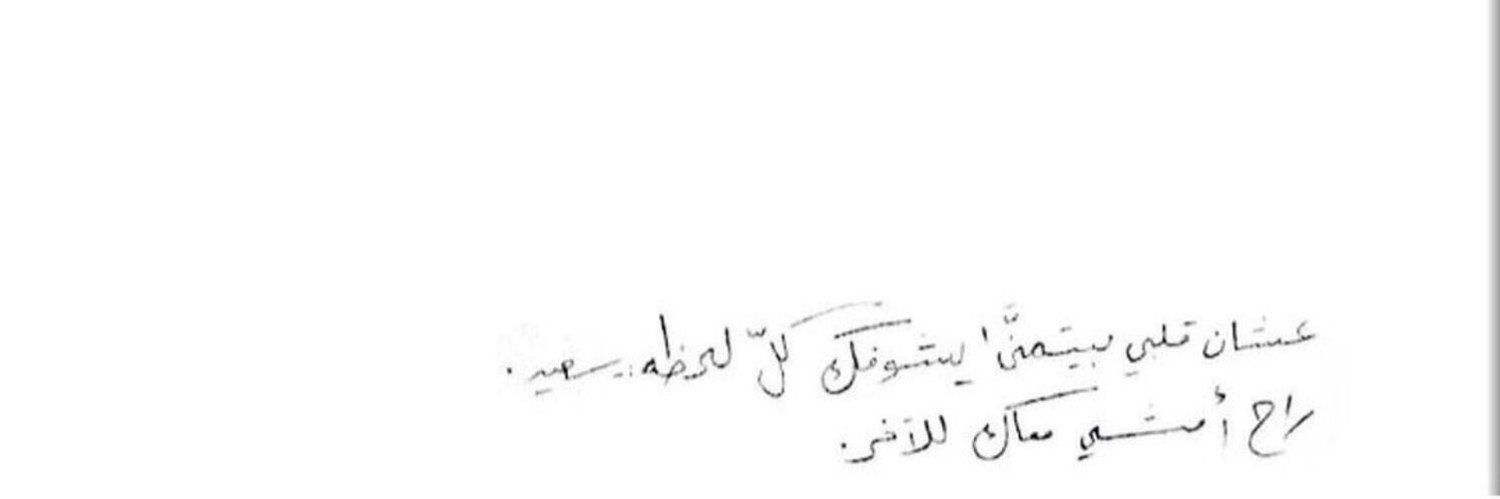 عشان قلبي بيتمنَّا يشوفك كلّ لحظه.. سعيد.
راح أمشي معاك للآخر.